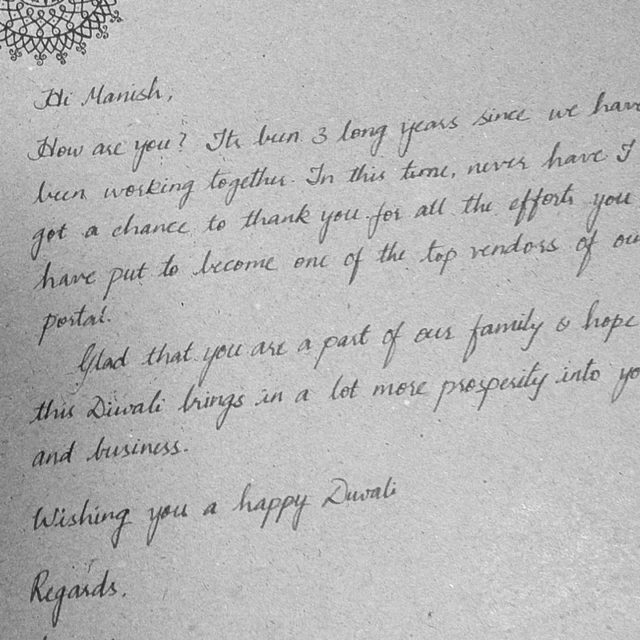 Hi Manish,
How are you? Its been 3 long years since we have
been working together. In this time, never have I
got a chance to thank you for all the efforts you
have put to become one of the top vendors of our
portal.
Glad that you are a part of our family & hope
this Diwali brings in a lot more prosperity into yo
and business.
Wishing you a happy Diwali
Regards,